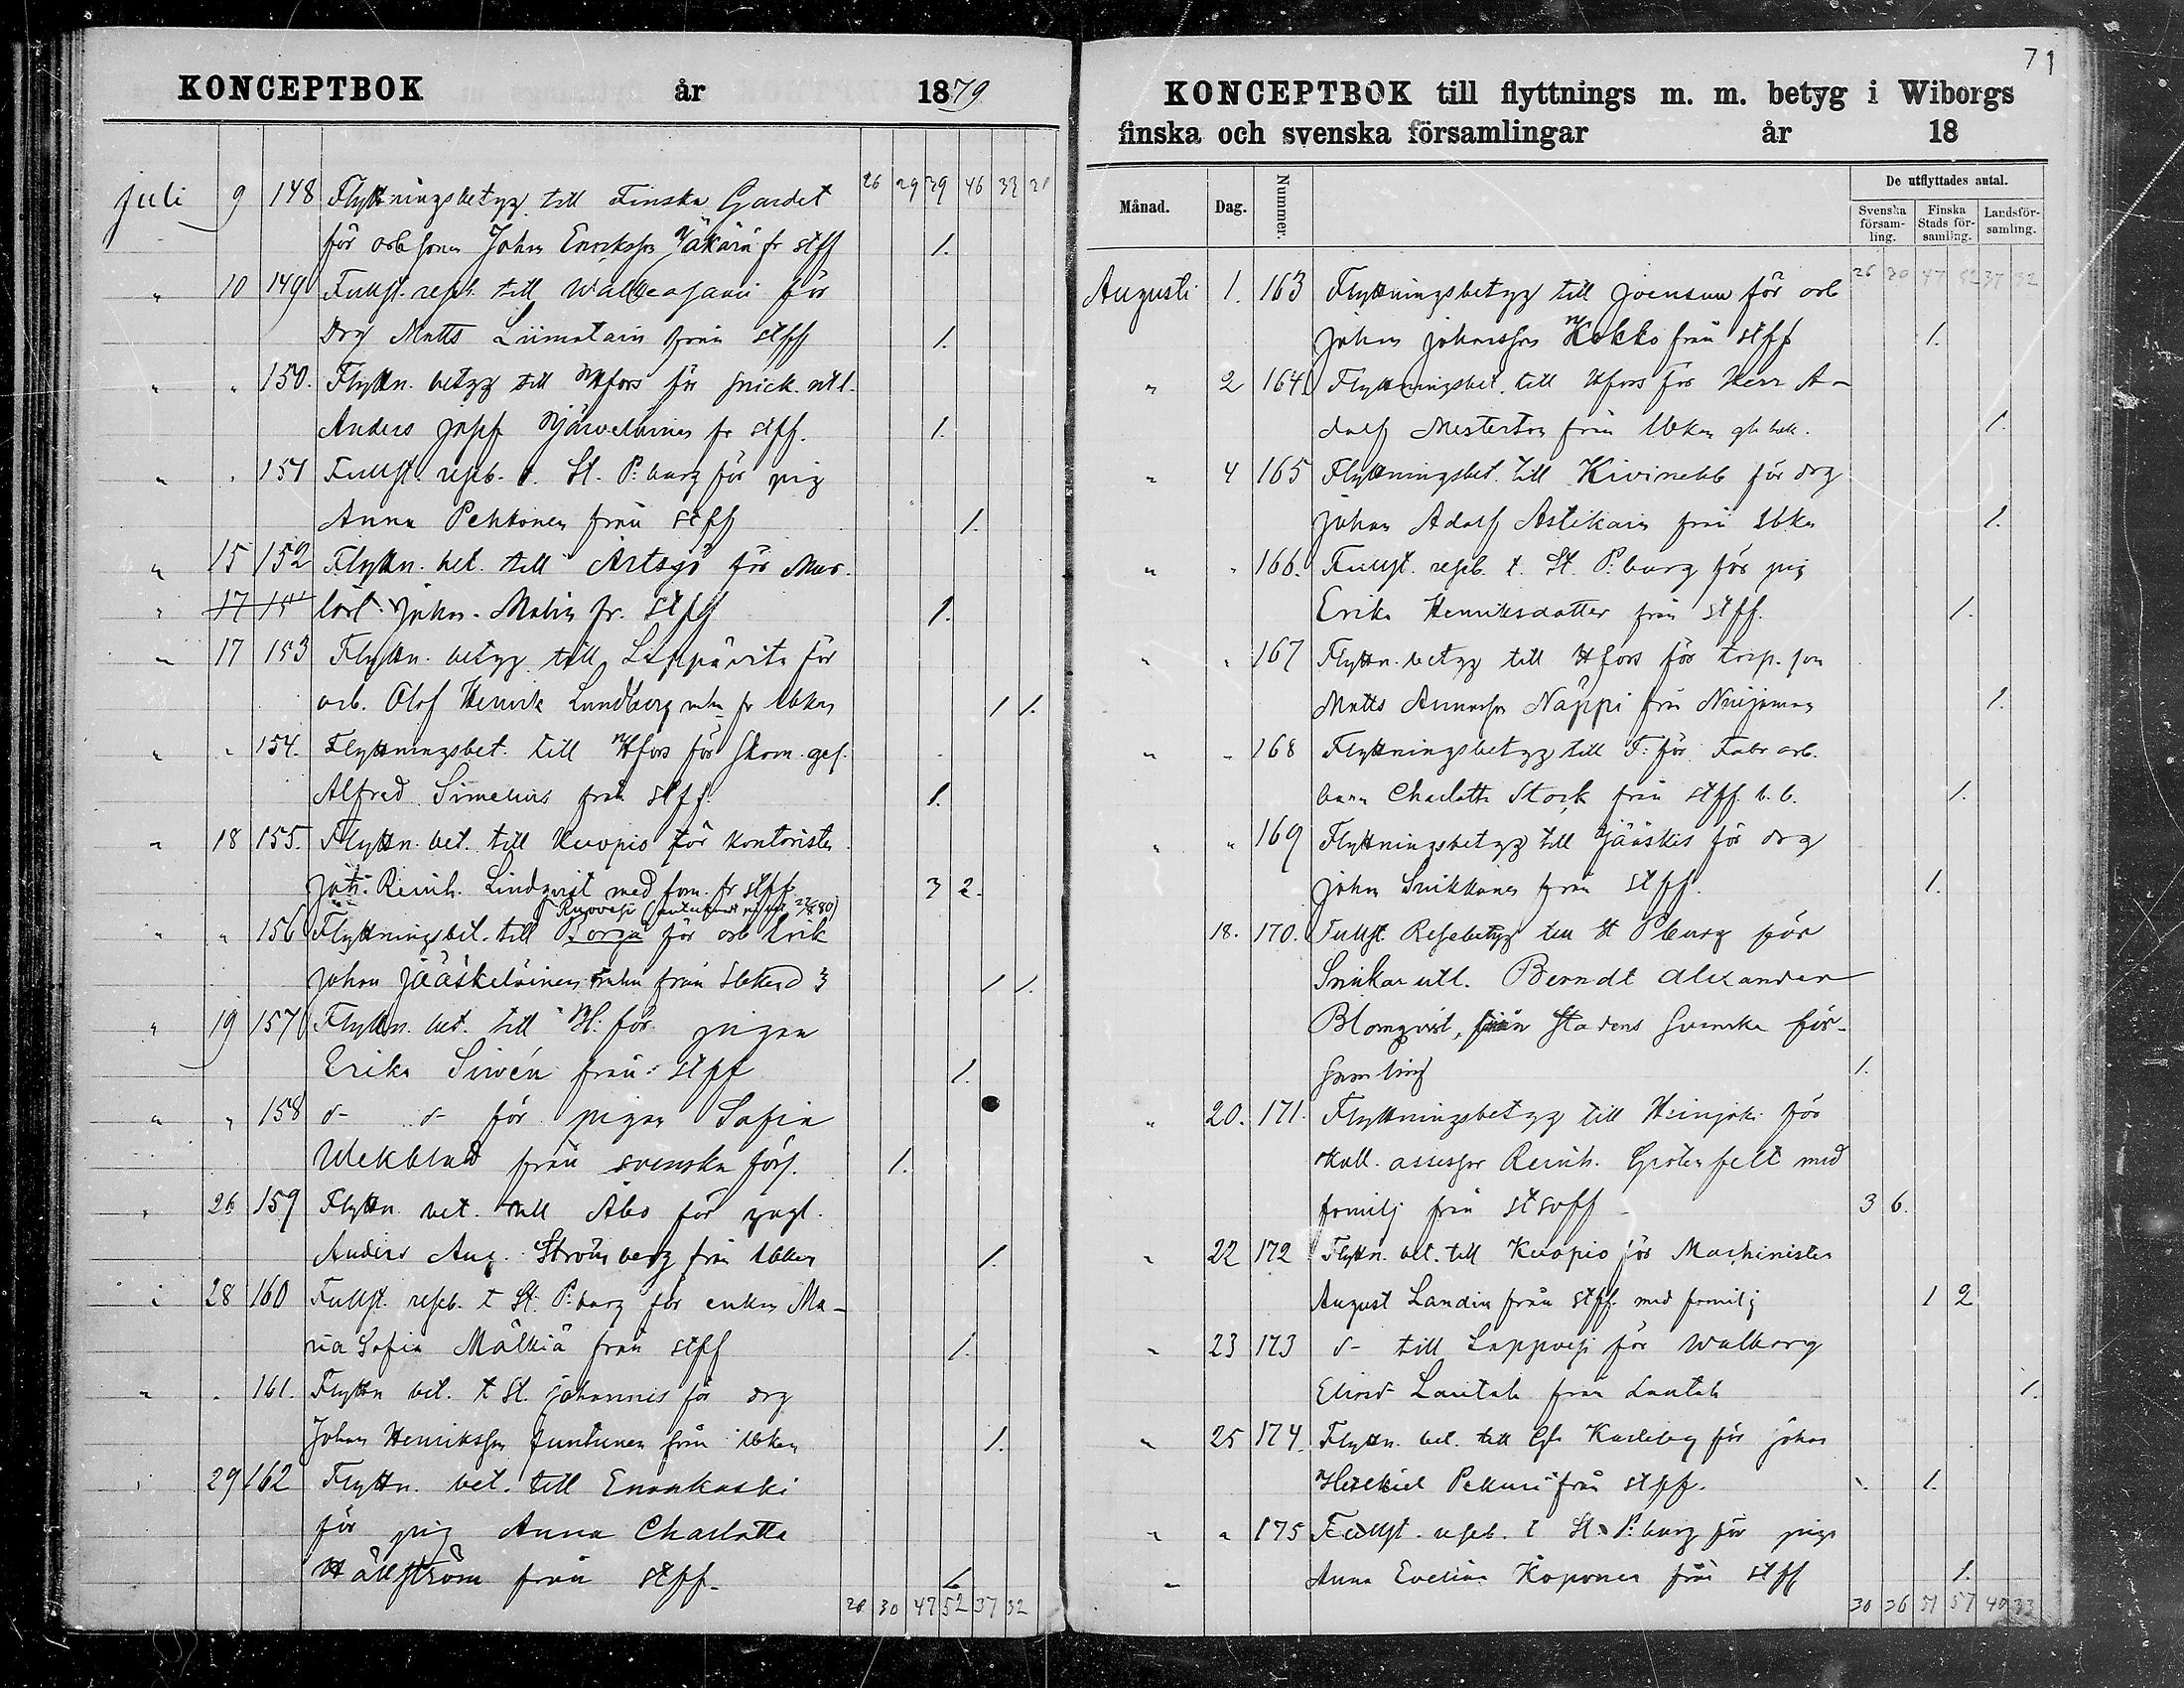 KONCEPTBOK år 1879
26 29 39 46 33 28
juli 9 148 Flyttningsbetyg till Finska Gardet
för arb sonen Johan Enocksson Jäkärä fr stff 1.
" 10 149 Fullst. reseb. till Walkeasaari för
drg Matts Liimatain från stff 1.
" " 150. Flyttn. betyg till Hfors för snick. utl.
Anders Josef Järveläinen fr stff. 1.
" " 151 Fullst. reseb. t. St. P:burg för pig
Anna Pekkonen från stff 1.
" 15 152 Flyttn. bet. till Artsjö för Mur-
" 17 15 lärl. Johan Malin fr. stff 1.
" 17 153 Flyttn. betyg till Leppävirta för
arb. Olof Henrik Lundberg mhu fr lbken 1 1.
" " 154. Flyttningsbet. till Hfors för skom. ges.
Alfred Simelius från stff. 1.
" 18 155. Flyttn. bet. till Kuopio för kontoristen
Joh. Reinh. Lindqvist med fam. fr stff. 3 2.
" " 156 Flyttningsbet. till Borgå för arb Erik
Johan Jääskeläinen mhu från lbken 1 1.
" 19 157 Flyttn. bet. till H: för pigan
Erika Sivén från stff 1.
" " 158 d- d- för pigan Sofia
Wekblad från svenska förs. 1.
" 26 159 Flyttn. bet. till Åbo för yngl.
Anders Aug. Strömberg från lbken 1.
" 28 160 Fullst. reseb. t St. P:burg för enkan Ma-
ria Sofia Mälkiä från stff 1.
" " 161. Flyttn bet. t St. Johannis för drg
Johan Henriksson Juntunen från lbken 1.
" 29 162 Flyttn. bet. till Enonkoski
för pig Anna Charlotta
Hällström från stff. 1.
28 30 47 52 37 32
71
KONCEPTBOK till flyttnings m. m. betyg i Wiborgs
finska och svenska församlingar år 18
Månad. Dag. Nummer. De utflyttades antal.
Svenska försam-ling. Finska Stads för-samling. Landsför-samling.
26 30 47 52 37 32
Augusti 1. 163 Flyttningsbetyg till Joensuu för arb
Johan Johansson Kokko från stff 1.
" 2 164. Flyttningsbet. till Hfors för Herr A-
dolf Mesterton från lbken 1.
" 4 165 Flyttningsbet. till Kivinebb för drg
Johan Adolf Astikain från lbken 1.
" " 166. Fullst. reseb. t. St. P:burg för pig
Erika Henriksdotter från stff. 1.
" " 167 Flyttn. betyg till Hfors för torp. son
Matts Näppi från Nuijamaa 1.
" " 168 Flyttningsbetyg till F: för Fabr arb.
Charlotta Stork från stff. 1.
" " 169 Flyttningsbetyg till Jääskis för drg
Johan Snikkanen från stff. 1.
18. 170. Fullst. Resebetyg till St Pburg för
Snickar utl. Berndt Alexander
Blomqvist, från Stadens Svenska för-
samling 1.
" 20. 171. Flyttningsbetyg till Heinjoki för
Koll. assessor Reinh. Grotenfelt med
familj från stsvff 3 6.
" 22 172 Flyttn. bet. till Kuopio för Maschinisten
August Landin från stff. med familj 1 2
" 23 173 d- till Lappvesi för Walborg
Elina Lautala från 1.
" 25 174. Flyttn. bet. till Gla Karleby för Johan
Heskiel Pekuri från stff. 1.
" " 175 Fullst. reseb. t St. P:burg för piga
" Anna Evelina Koponen från stff 1.
30 36 51 57 40 33